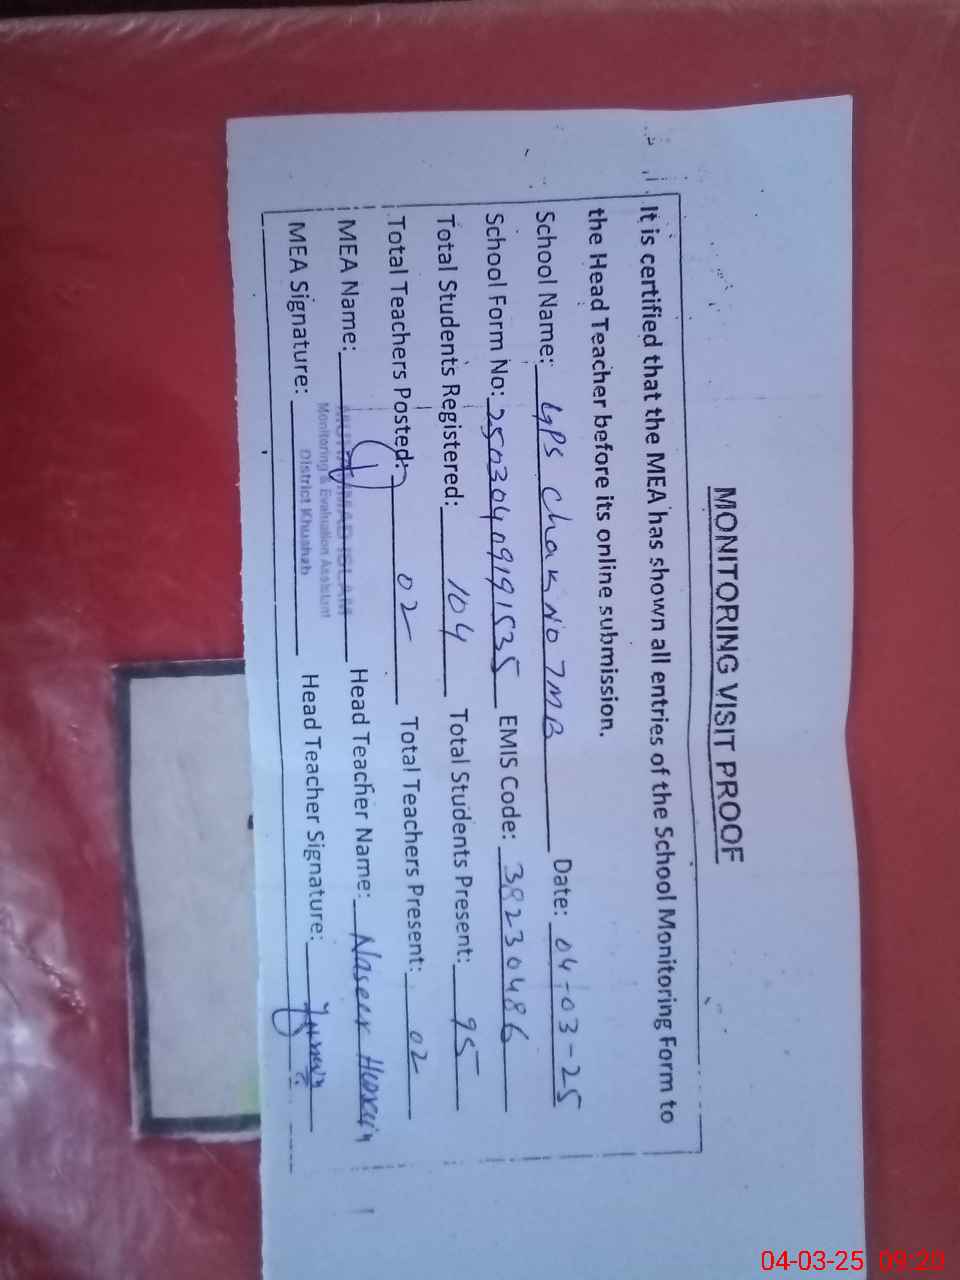 MONITORING VISIT PROOF
It is certified that the MEA has shown all entries of the School Monitoring Form to
the Head Teacher before its online submission.
School Name: GPS Chak No 7MB Date: 04-03-25
School Form No: 25030409191535 EMIS Code: 38230486
Total Students Registered: 104 Total Students Present: 95
Total Teachers Posted: 02 Total Teachers Present: 02
MEA Name: MUHAMMAD ISLAM Head Teacher Name: Naseer Hussain
Monitoring & Evaluation Assistant
District Khushab
MEA Signature: Head Teacher Signature:
04-03-25 09:20